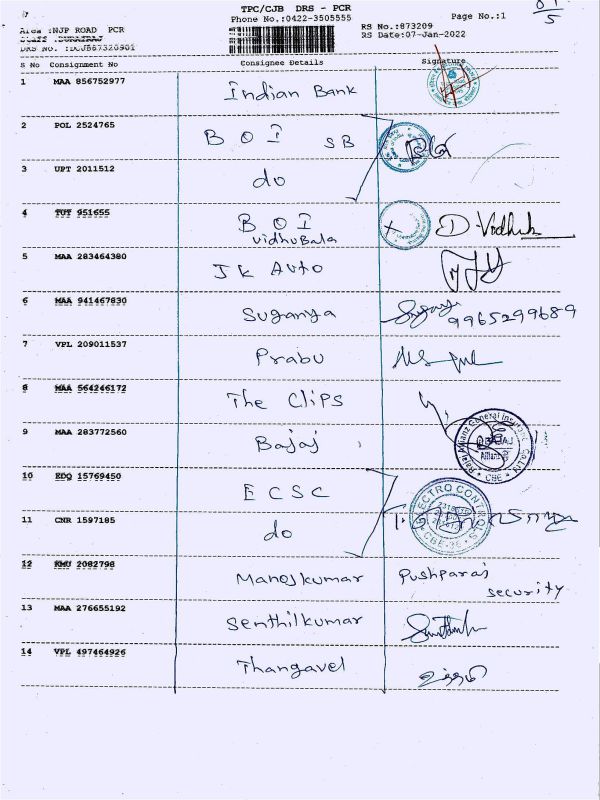 TPC/CJB DRS - PCR
Phone No.:0422-3505555
Page No.:1
Area :NJP ROAD PCR
RS No.:873209
RS Date:07-Jan-2022
DRS No. :DCJB67320901
S No Consignment No Consignee Details Signature
1 MAA 856752977 Indian Bank
2 POL 2524765 B O I SB
3 UPT 2011512 do
4 TUT 951655 B O I
vidhuBala D. Vidhub
5 MAA 283464380 JK Auto
6 MAA 941467830 Suganya 9965299689
7 VPL 209011537 Prabu
8 MAA 564246172 The Clips
9 MAA 283772560 Bajaj
Bajaj Allianz General Insurance Co Ltd
BAJAJ
Allianz
CBE
10 EDQ 15769450 E C S C
ELECTRO CONTROLS
11 CNR 1597185 do
12 KMU 2082798 Manojkumar Pushparaj
security
13 MAA 276655192 Senthilkumar
14 VPL 497464926 Thangavel